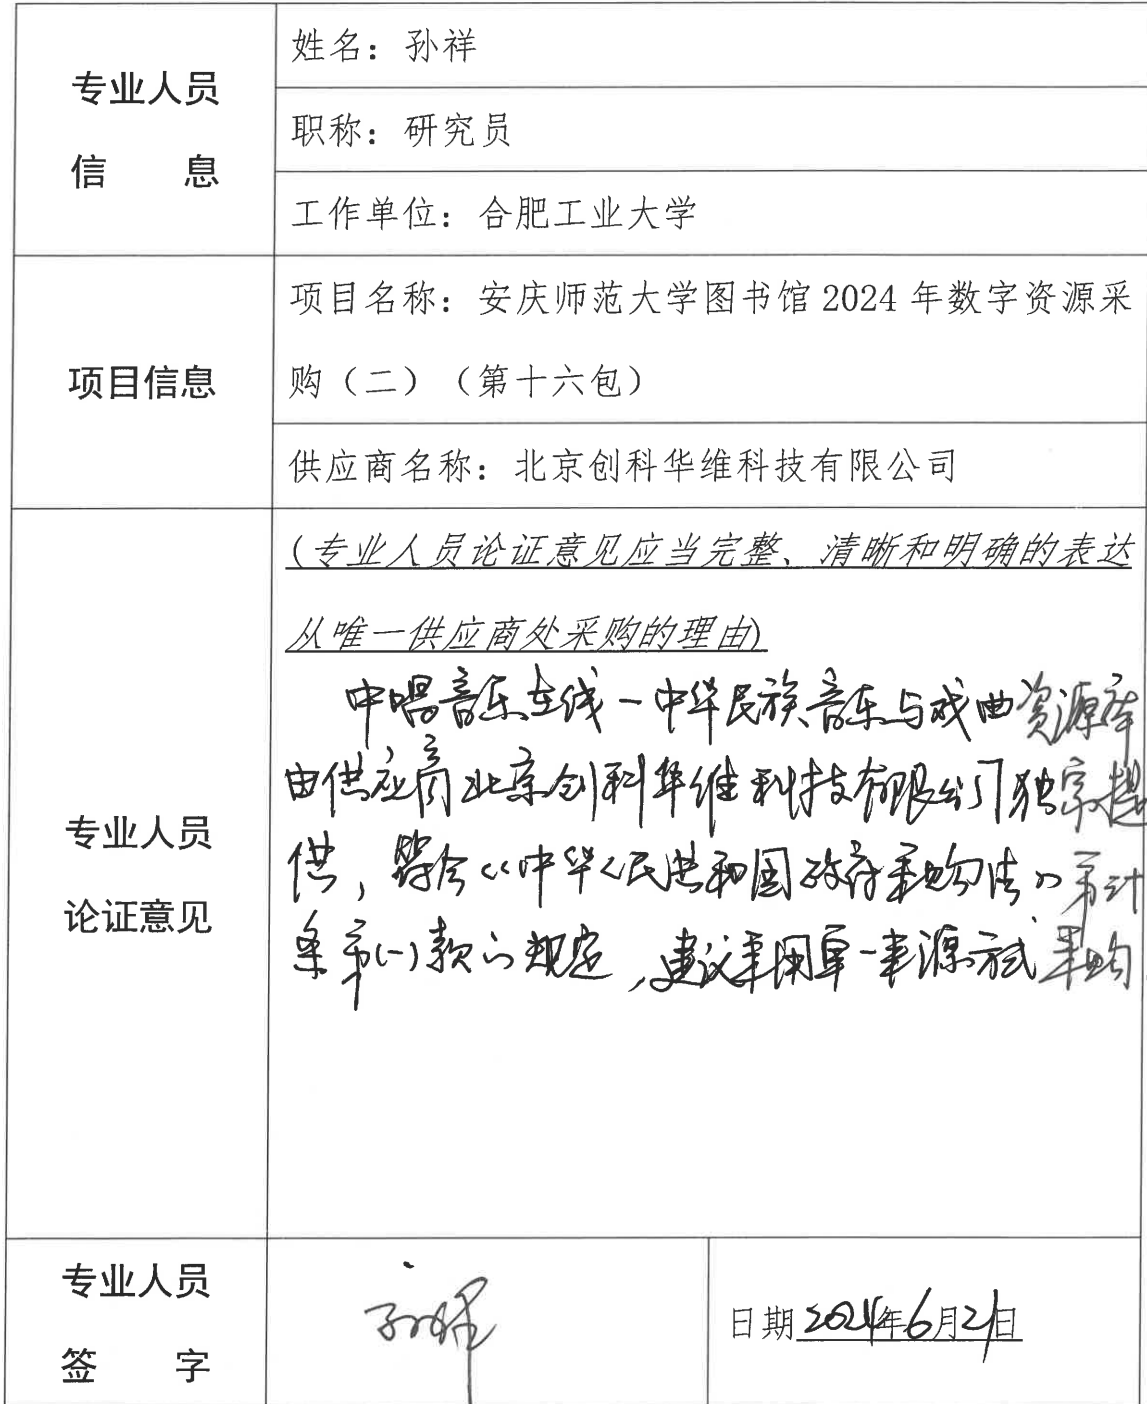 专业人员
信 息
姓名：孙祥
职称：研究员
工作单位：合肥工业大学
项目信息
项目名称：安庆师范大学图书馆 2024 年数字资源采
购（二）（第十六包）
供应商名称：北京创科华维科技有限公司
专业人员
论证意见
(专业人员论证意见应当完整、清晰和明确的表达
从唯一供应商处采购的理由)
中唱音乐在线－中华民族音乐与戏曲资源库
由供应商北京创科华维科技有限公司独家提
供，符合《中华人民共和国政府采购法》第卅
条第(一)款的规定，建议采用单一来源方式采购
专业人员
签 字
孙祥
日期 2024年6月21日